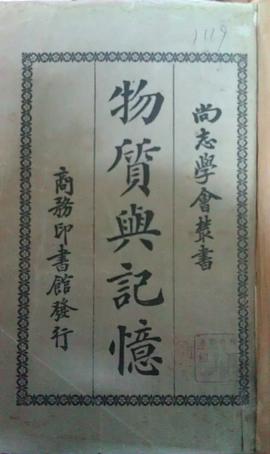 1119
尚志學會叢書
物質與記憶
商務印書館發行